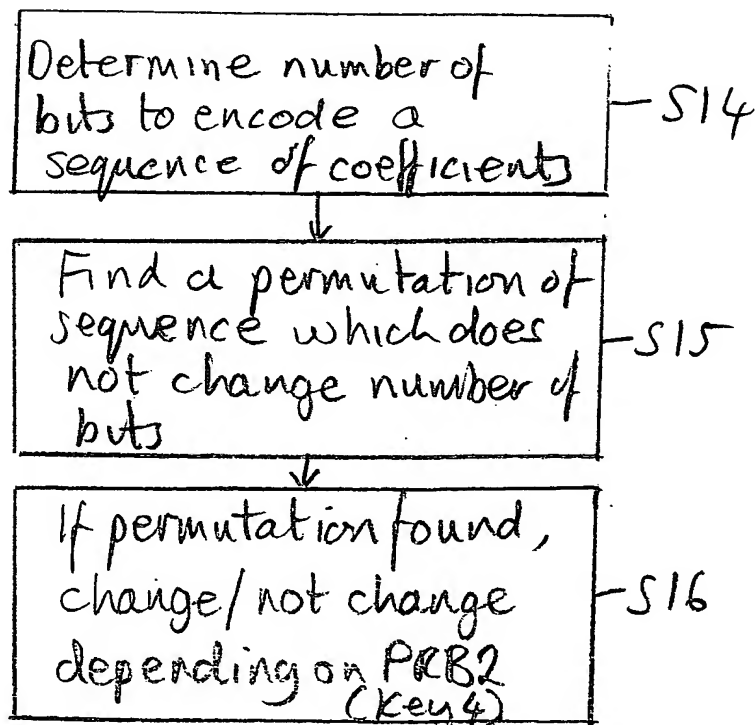 Determine number of
bits to encode a
sequence of coefficients
S14
Find a permutation of
sequence which does
not change number of
bits
S15
If permutation found,
change/not change
depending on PRB2
(Key 4)
S16